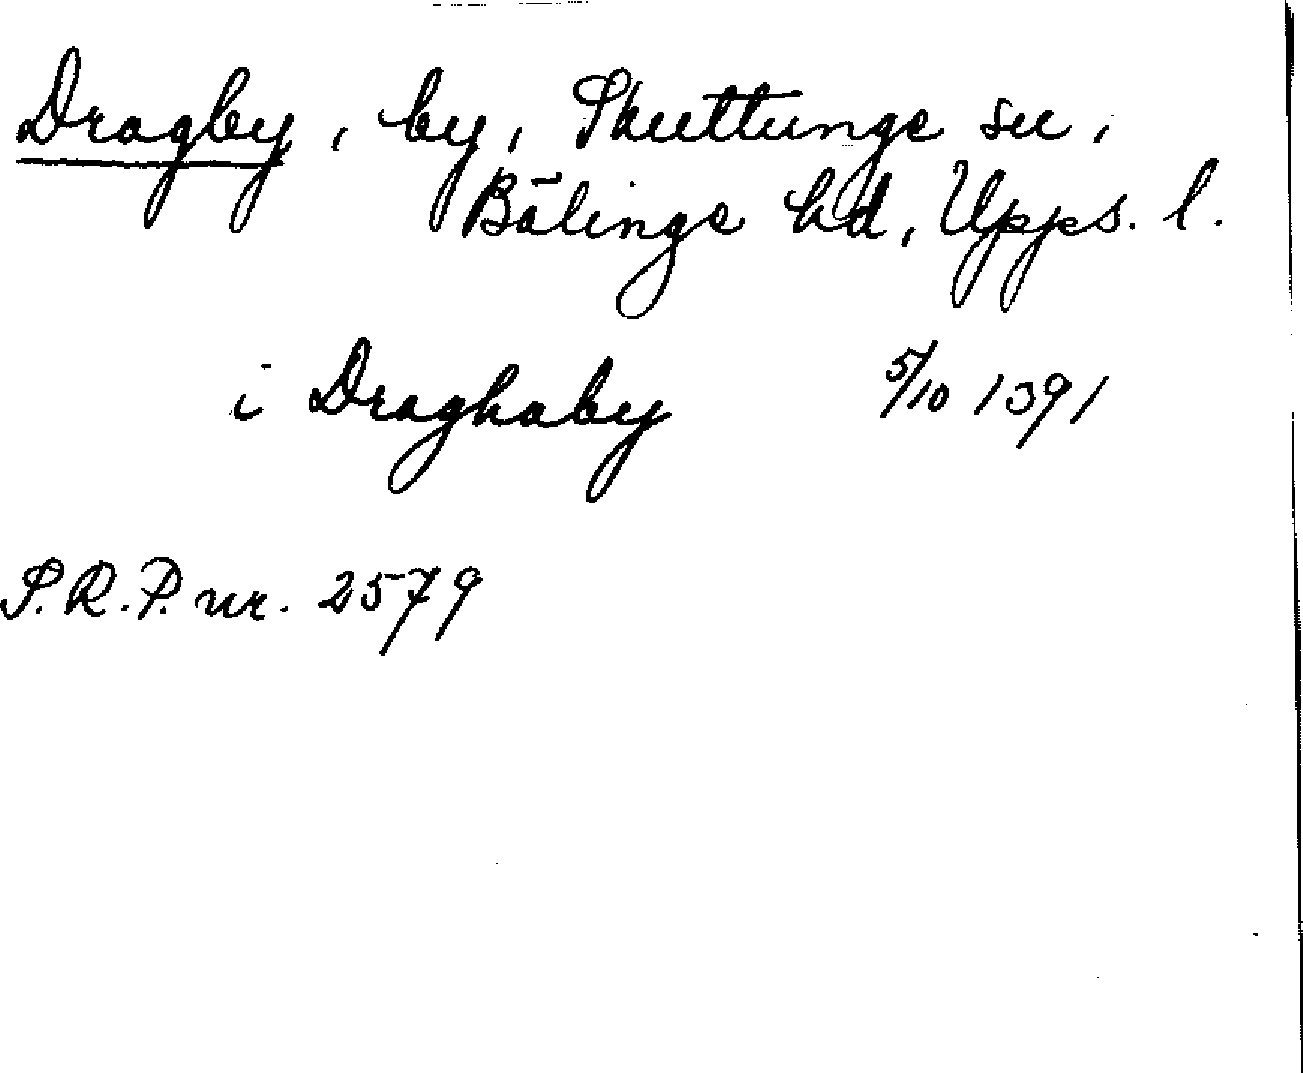 Dragby, by, Skuttunge sn,
Bälinge hd, Upps. l.
i Draghaby 5/10 1391
S.R.P. nr. 2579